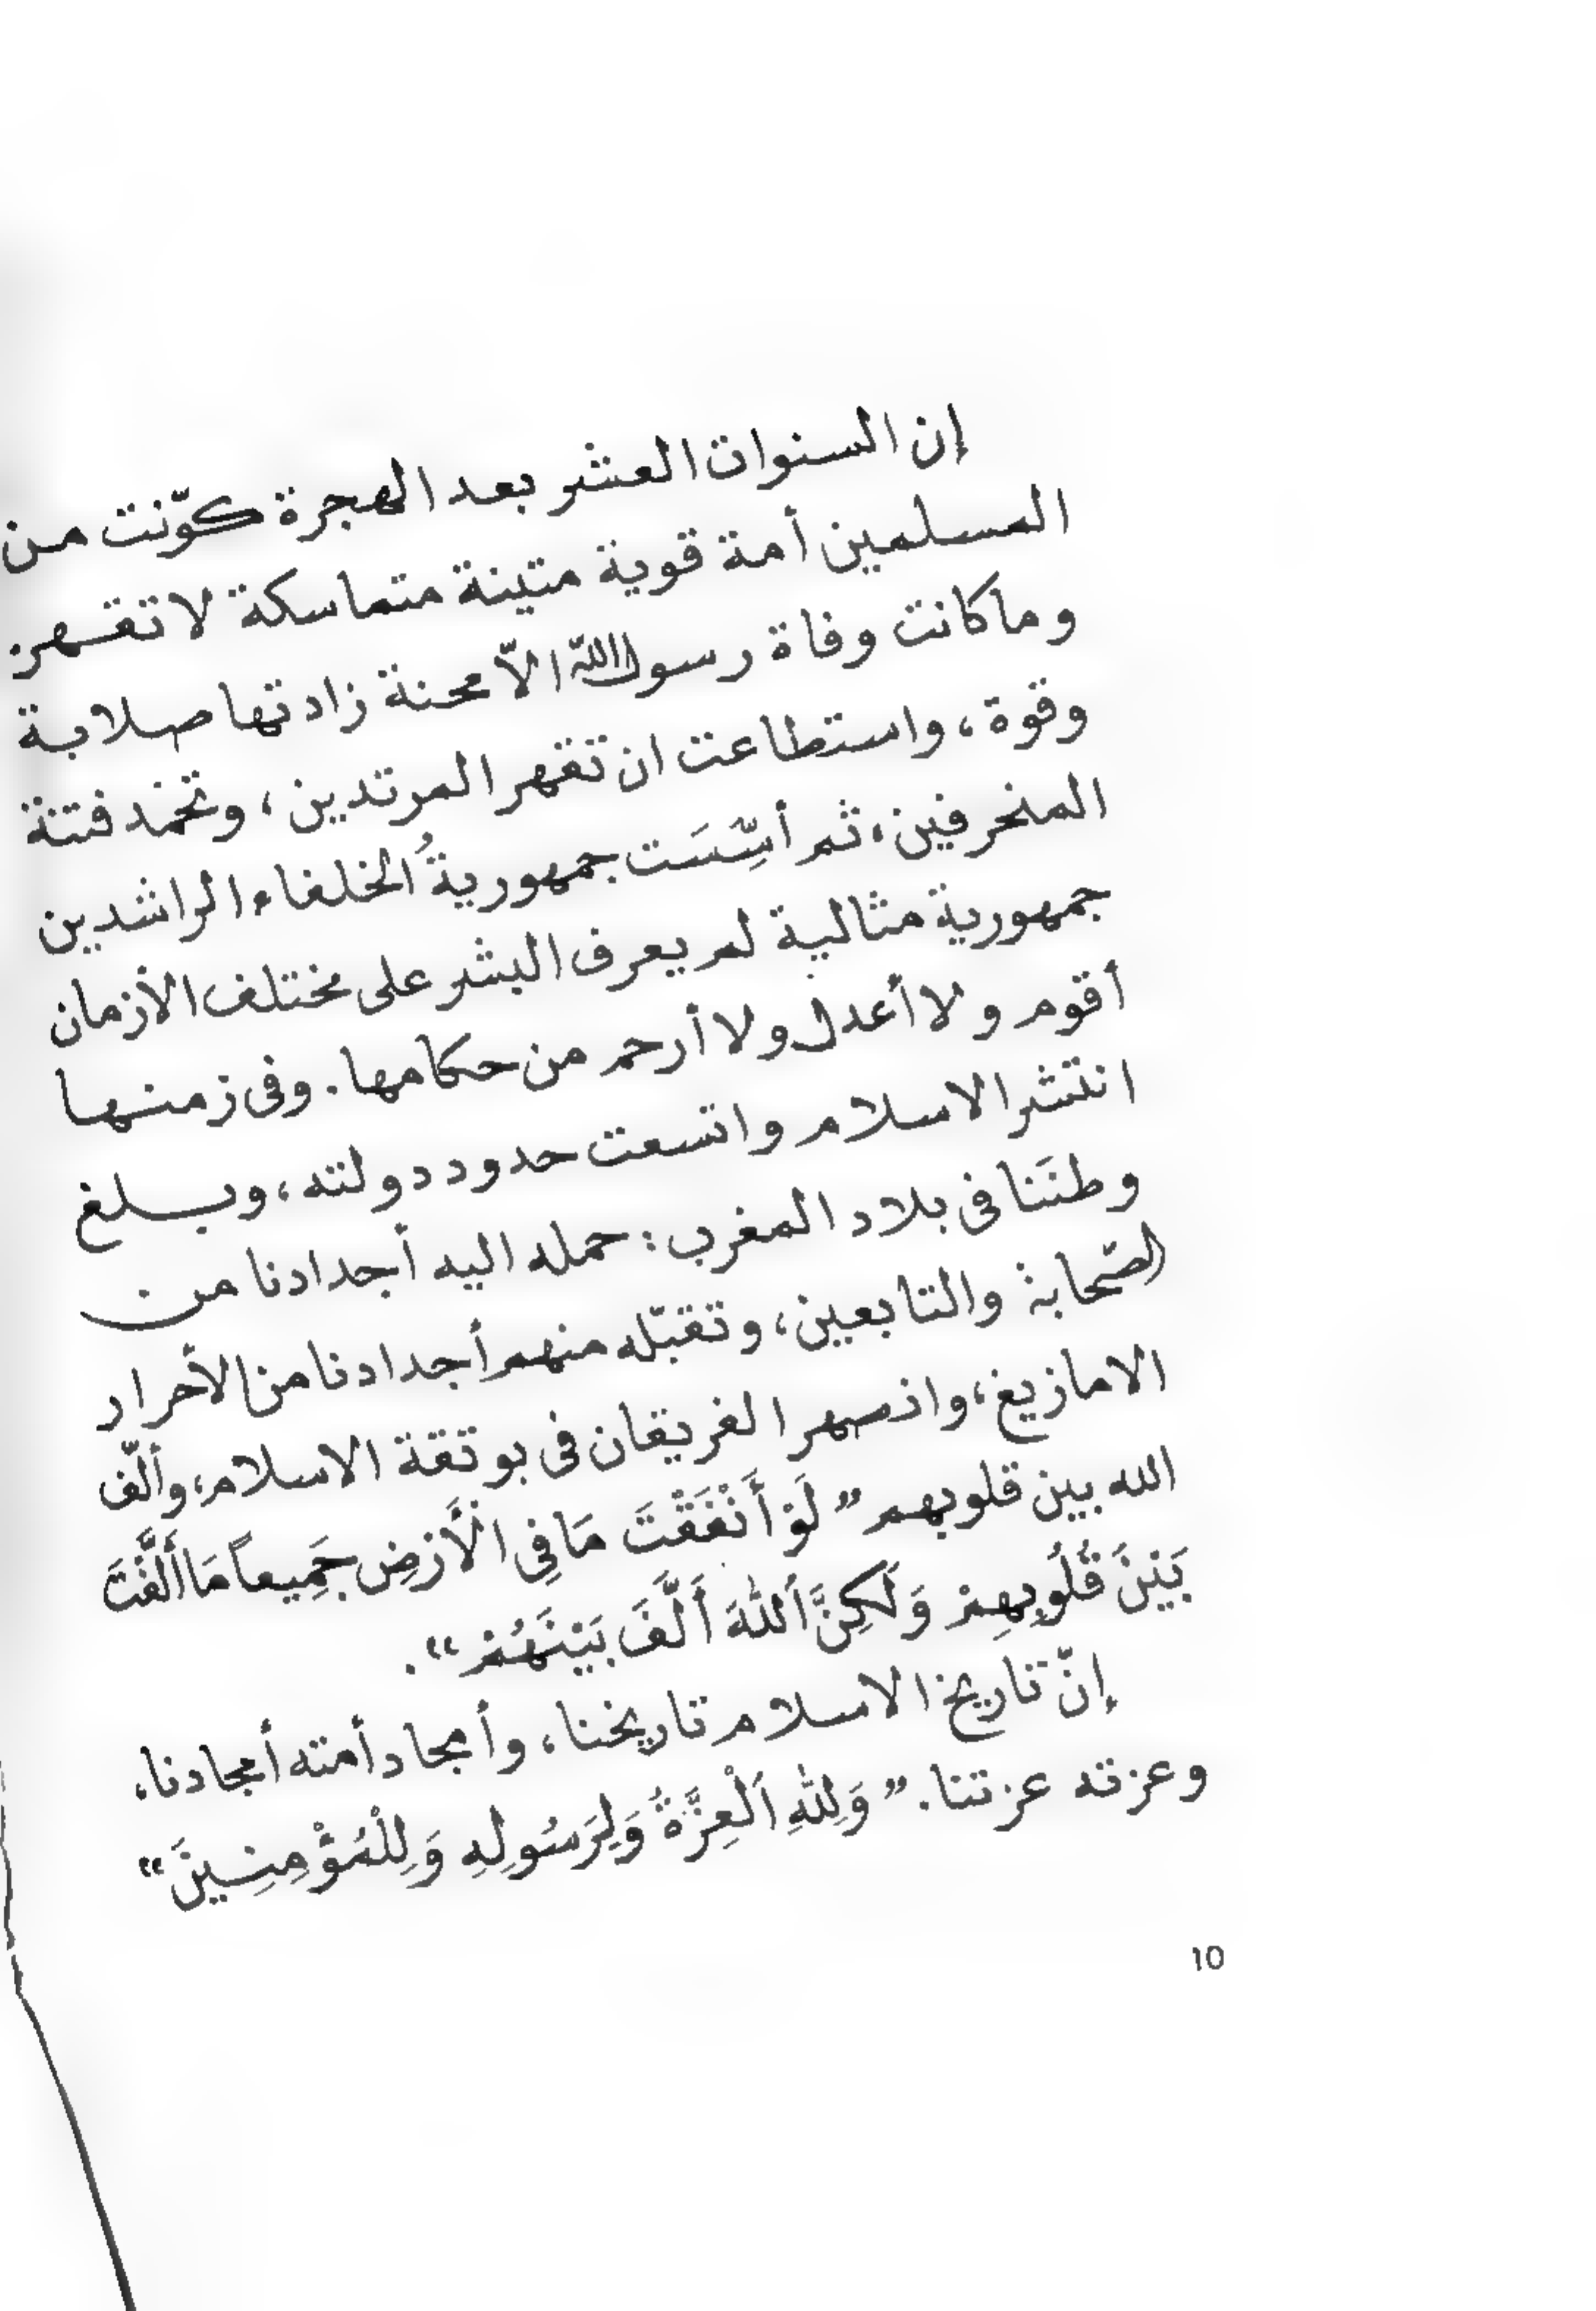 إن السنوات العشر بعد الهجرة كوّنت من
المسلمين أمة قوية متينة متماسكة لا تقهر.
وما كانت وفاة رسول الله الاّ محنة زادتها صلابة
وقوة، واستطاعت ان تقهر المرتدين، وتخمد فتنة
المنحرفين، ثم أسِّسَت جمهوريةُ الخلفاء الراشدين
جمهورية مثالية لم يعرف البشر على مختلف الأزمان
أقوم ولا أعدل ولا أرحم من حكامها. وفى زمنها
انتشر الاسلام واتسعت حدود دولته، وبلغ
وطنَنا فى بلاد المغرب: حمله اليه أجدادنا من
الصّحابة والتابعين، وتقبّله منهم أجدادنا من الأحرار
الامازيغ، وانصهر الفريقان فى بوتقة الاسلام، وألّف
الله بين قلوبهم "لَوْ أَنْفَقْتَ مَا فِى الْأَرْضِ جَمِيعاً مَا أَلَّفْتَ
بَيْنَ قُلُوبِهِمْ وَلَكِنَّ اَللهَ أَلَّفَ بَيْنَهُمْ".
إنّ تاريخ الاسلام تاريخنا، وأمجاد أمته أمجادنا،
وعزته عزتنا. "وَلِلهِ اَلْعِزَّةُ وَلِرَسُولِهِ وَلِلْمُؤْمِنِينَ"
10